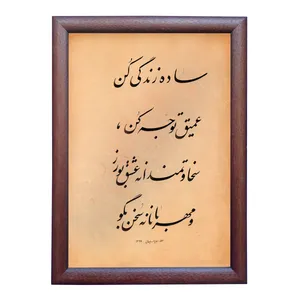 ساده زندگی کن
عمیق توجه کن ،
سخاوتمندانه عشق بورز
و مهربانانه سخن بگو